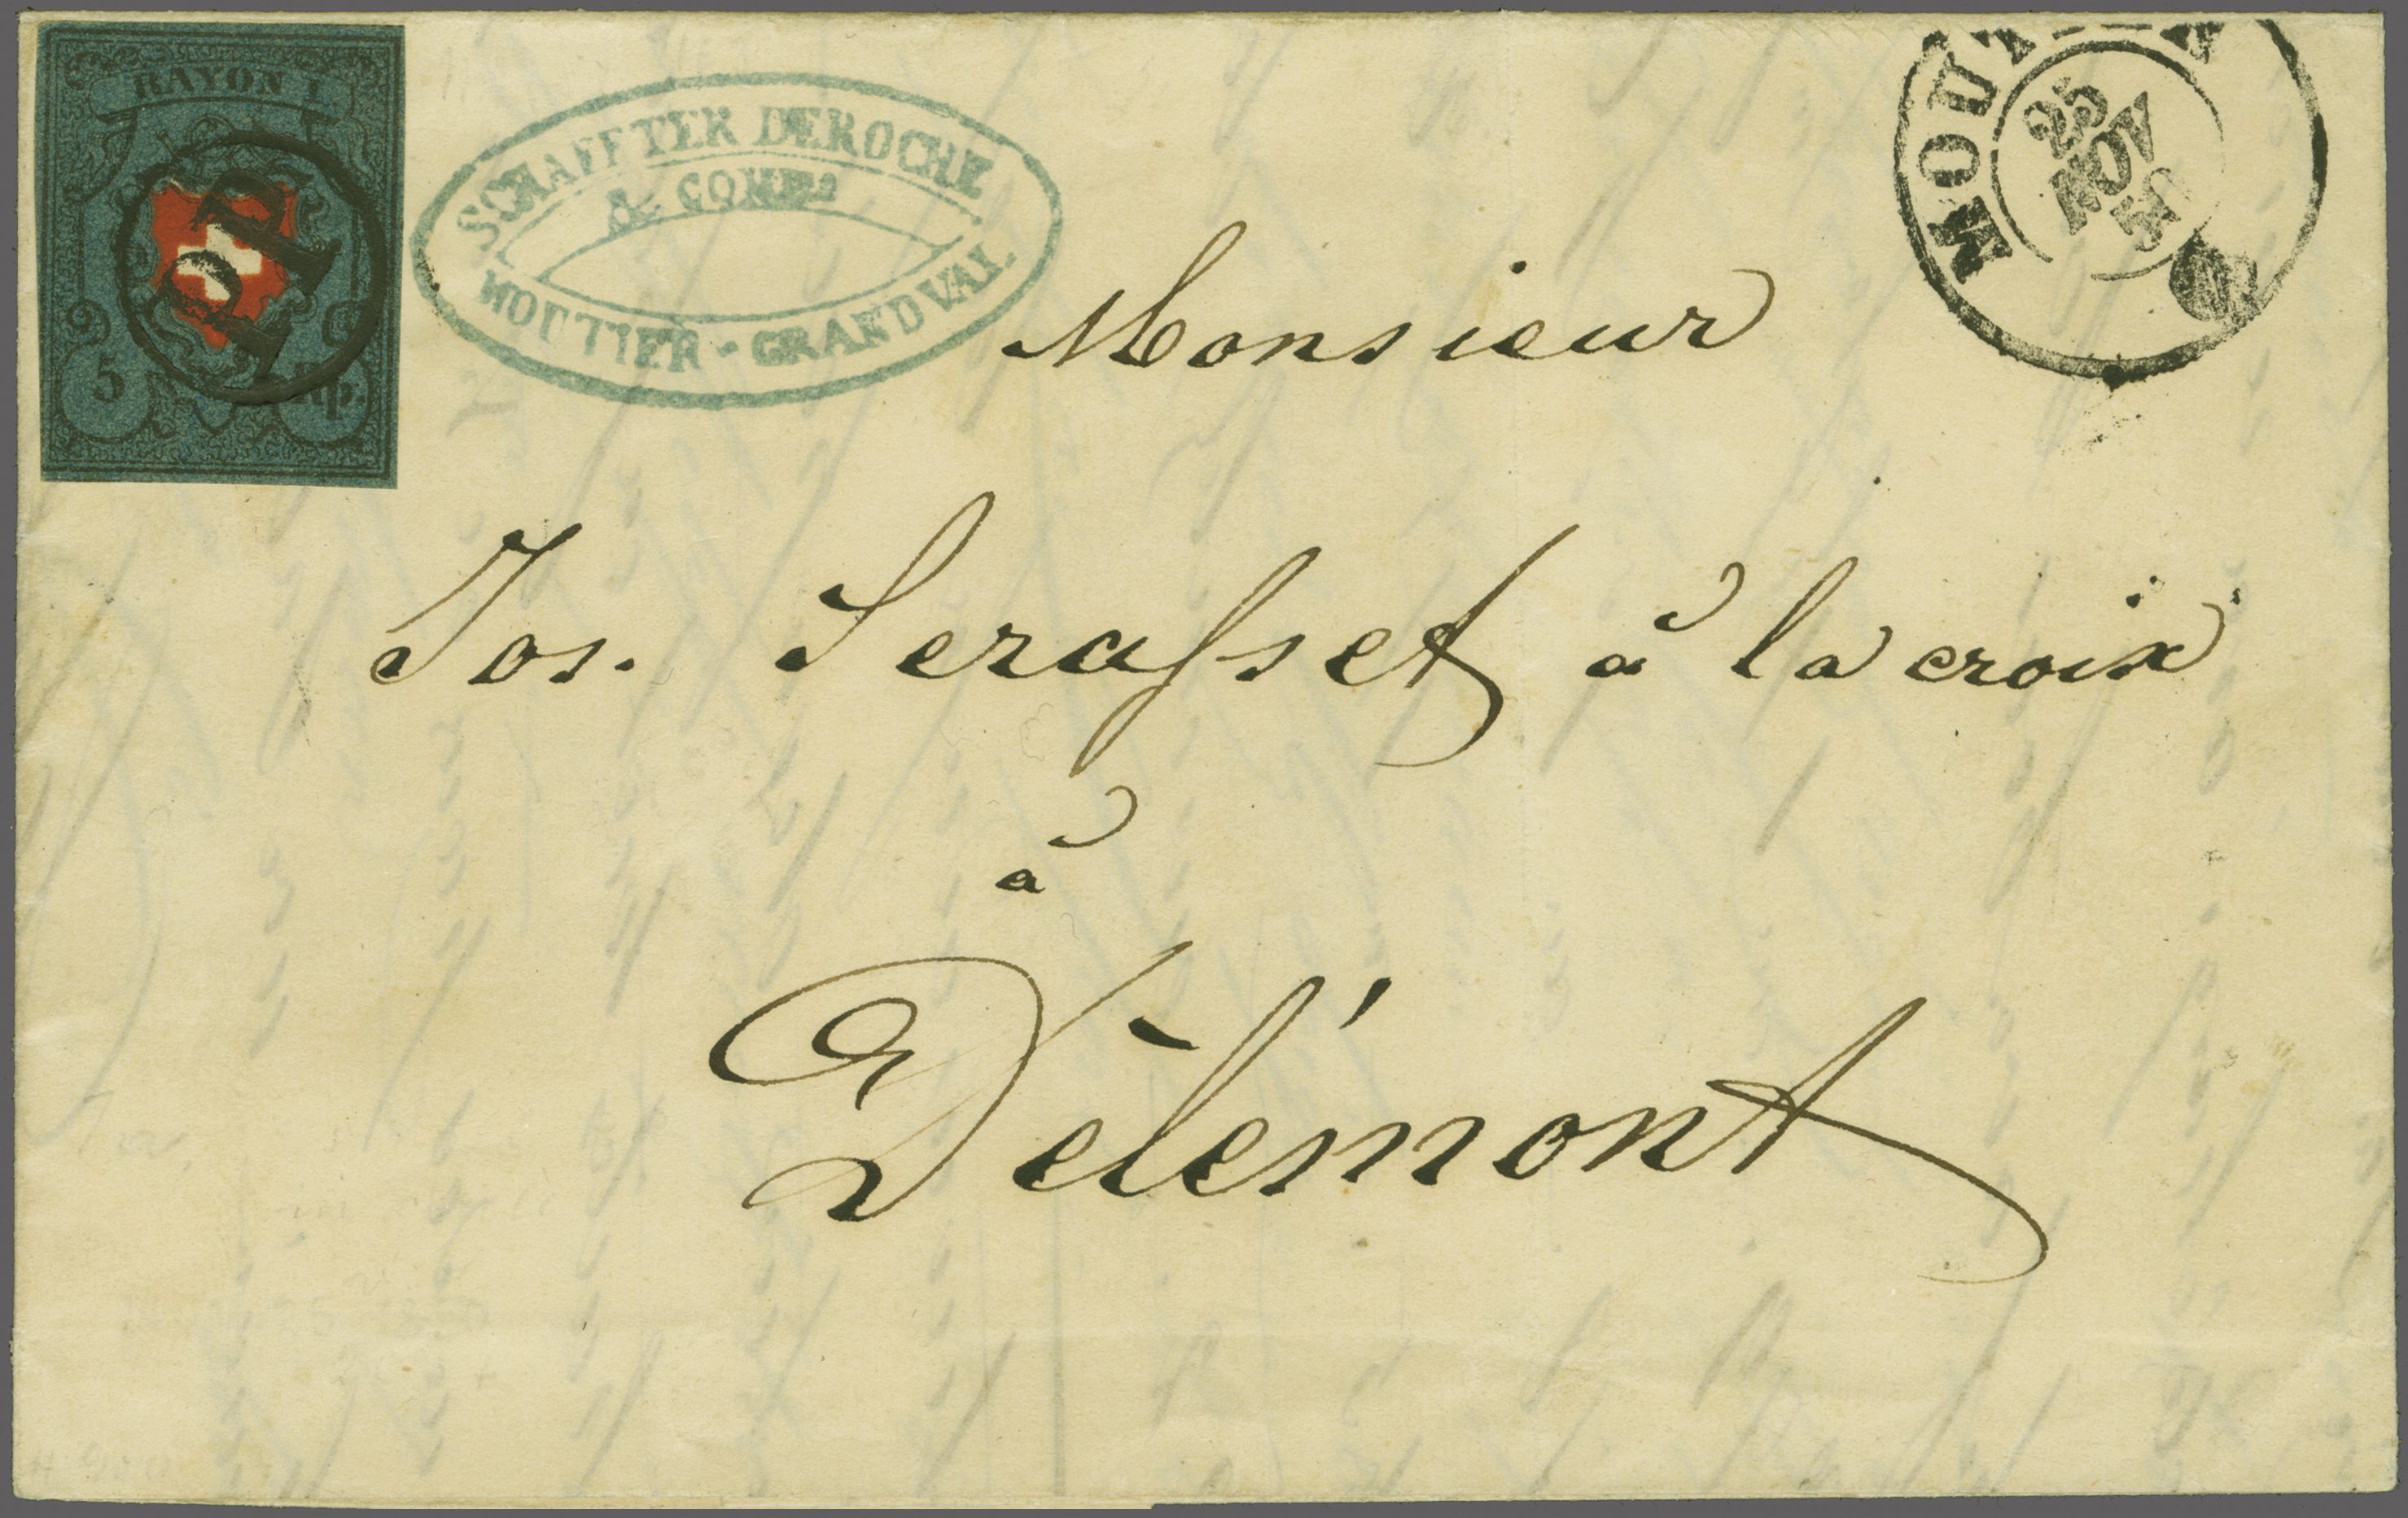 RAYON I.
PD
5 Rp.
SCHAFFTER DEROCHE
& COMP.
MOUTIER - GRANDVAL
25
NOV
Monsieur
Jos. Serasset à la croix
à
Délémont